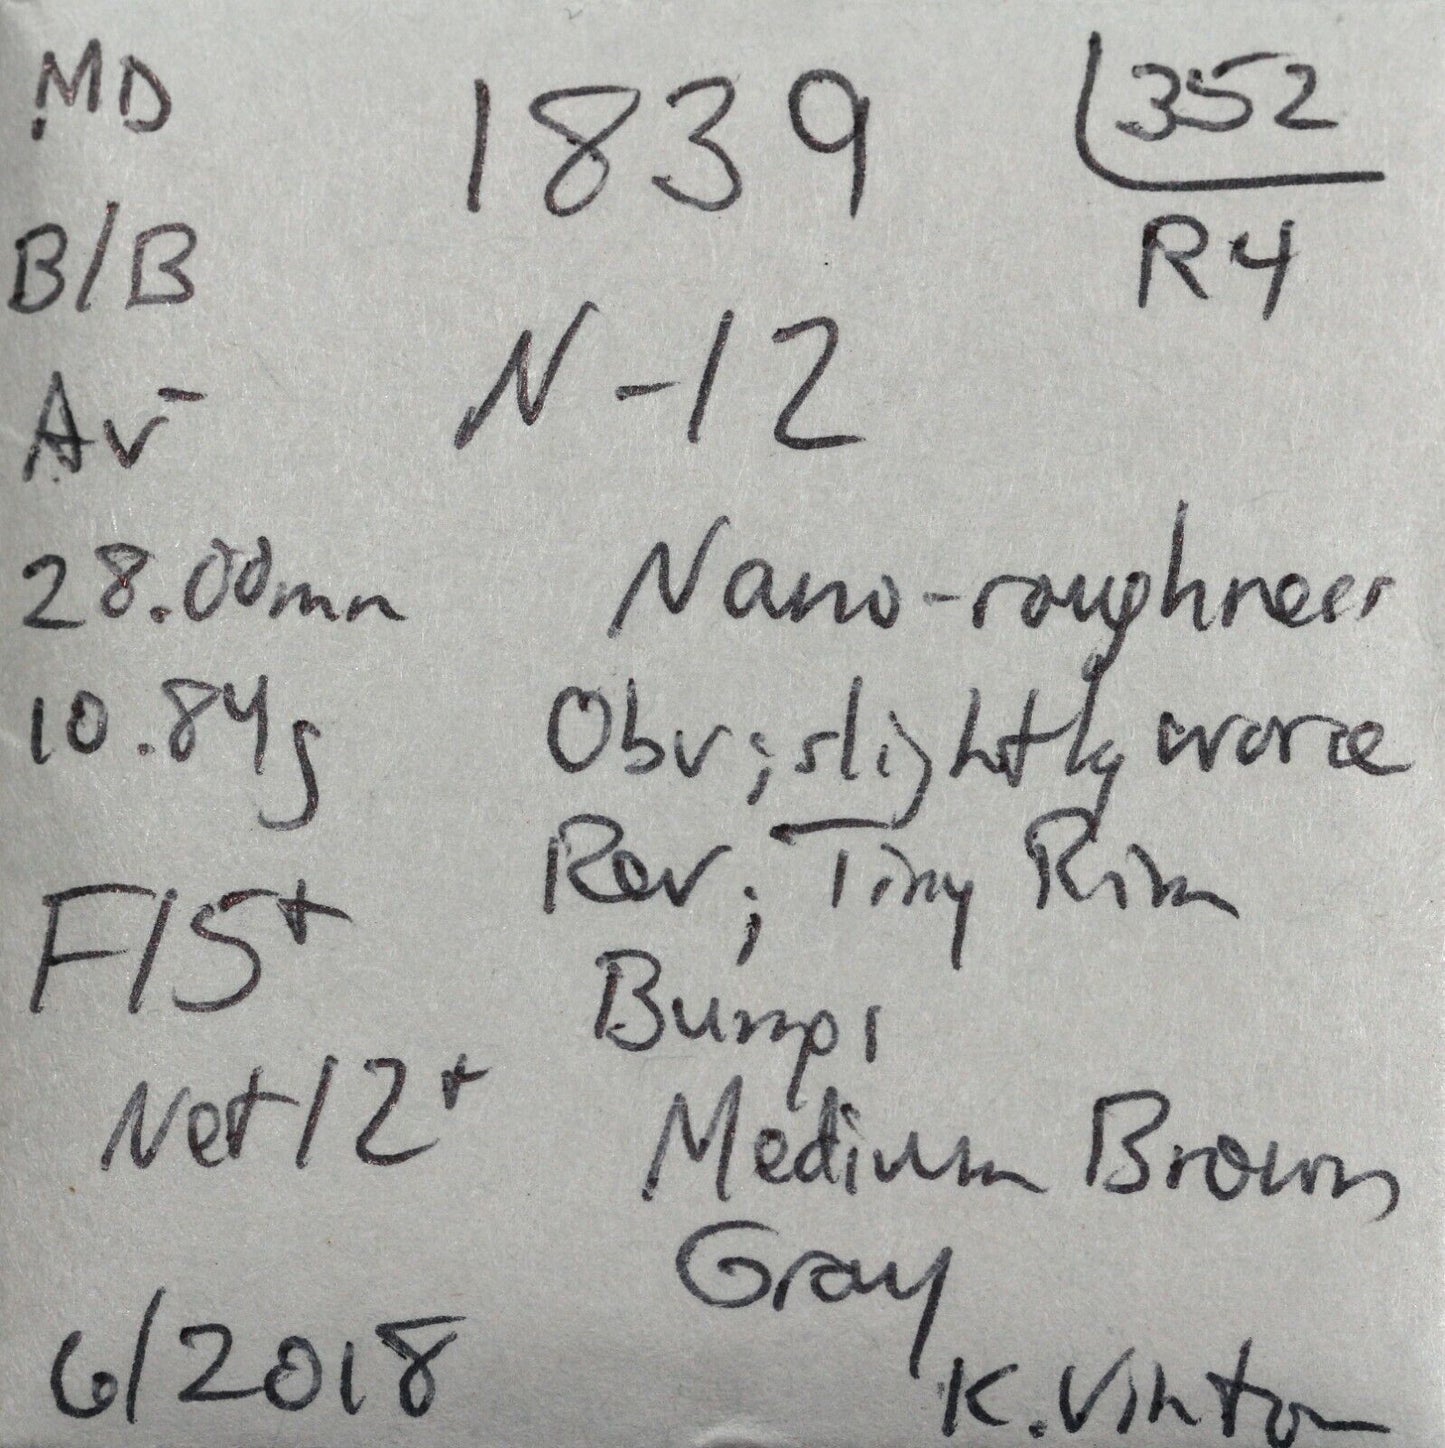 MD 1839 352
R4
B/B
N-12
Av-
28.00mm Nano-roughness
10.84g Obv; slightly worse
Rev; Tiny Rim
F15+
Bumps
Net 12+ Medium Brown
Gray
6/2018 K. Vinton